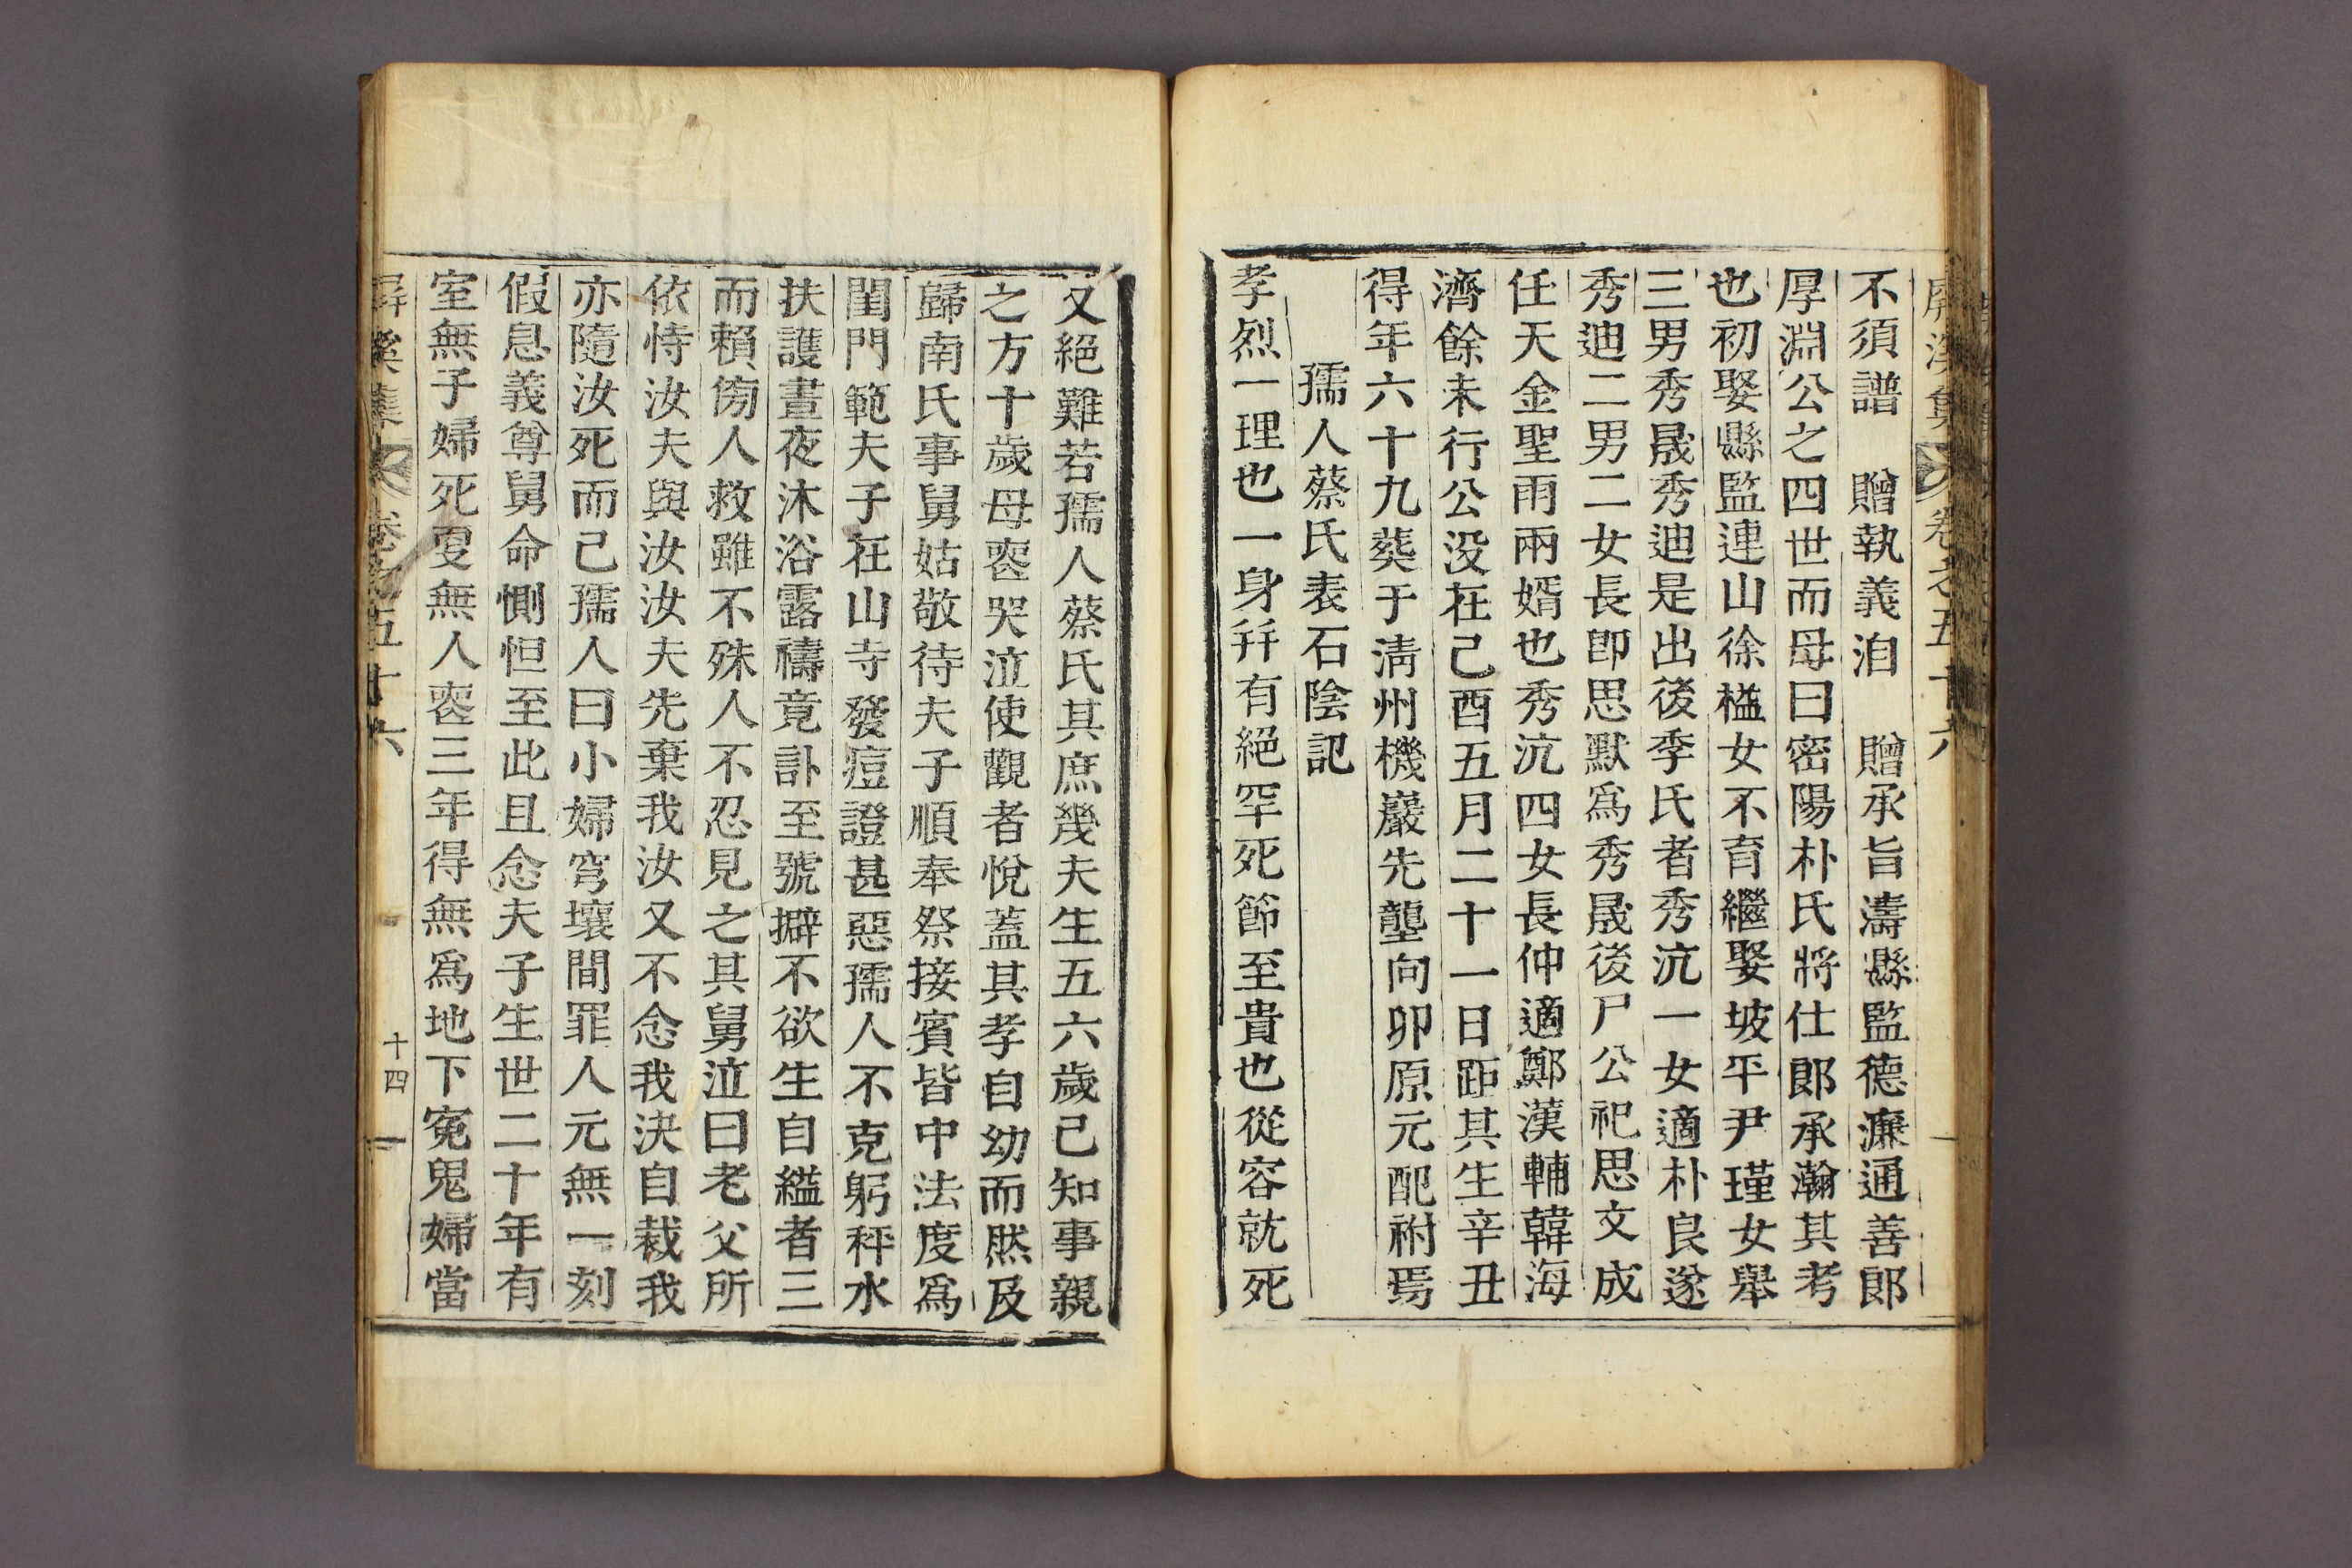 屛溪集 卷之五十六
不須譜 贈執義洎 贈承旨濤縣監德濂通善郎
厚淵公之四世而母曰密陽朴氏將仕郎承瀚其考
也初娶縣監連山徐橃女不育繼娶坡平尹瑾女舉
三男秀晟秀迪是出後季氏者秀沆一女適朴良遂
秀迪二男二女長卽思默爲秀晟後尸公祀思文成
任天金聖雨兩婿也秀沆四女長仲適鄭漢輔韓海
濟餘未行公没在己酉五月二十一日距其生辛丑
得年六十九葬于淸州機巖先壟向卯原元配祔焉
孺人蔡氏表石陰記
孝烈一理也一身幷有絕罕死節至貴也從容就死
又絕難若孺人蔡氏其庶幾夫生五六歲已知事親
之方十歲母喪哭泣使觀者悅蓋其孝自幼而然及
歸南氏事舅姑敬待夫子順奉祭接賓皆中法度爲
閨門範夫子在山寺發痘證甚惡孺人不克躬秤水
扶護晝夜沐浴露禱竟訃至號擗不欲生自縊者三
而賴傍人救雖不殊人不忍見之其舅泣曰老父所
依恃汝夫與汝汝夫先棄我汝又不念我決自裁我
亦隨汝死而已孺人曰小婦穹壤間罪人元無一刻
假息義尊舅命惻怛至此且念夫子生世二十年有
室無子婦死更無人喪三年得無爲地下寃鬼婦當
屛溪集 卷之五十六 十四